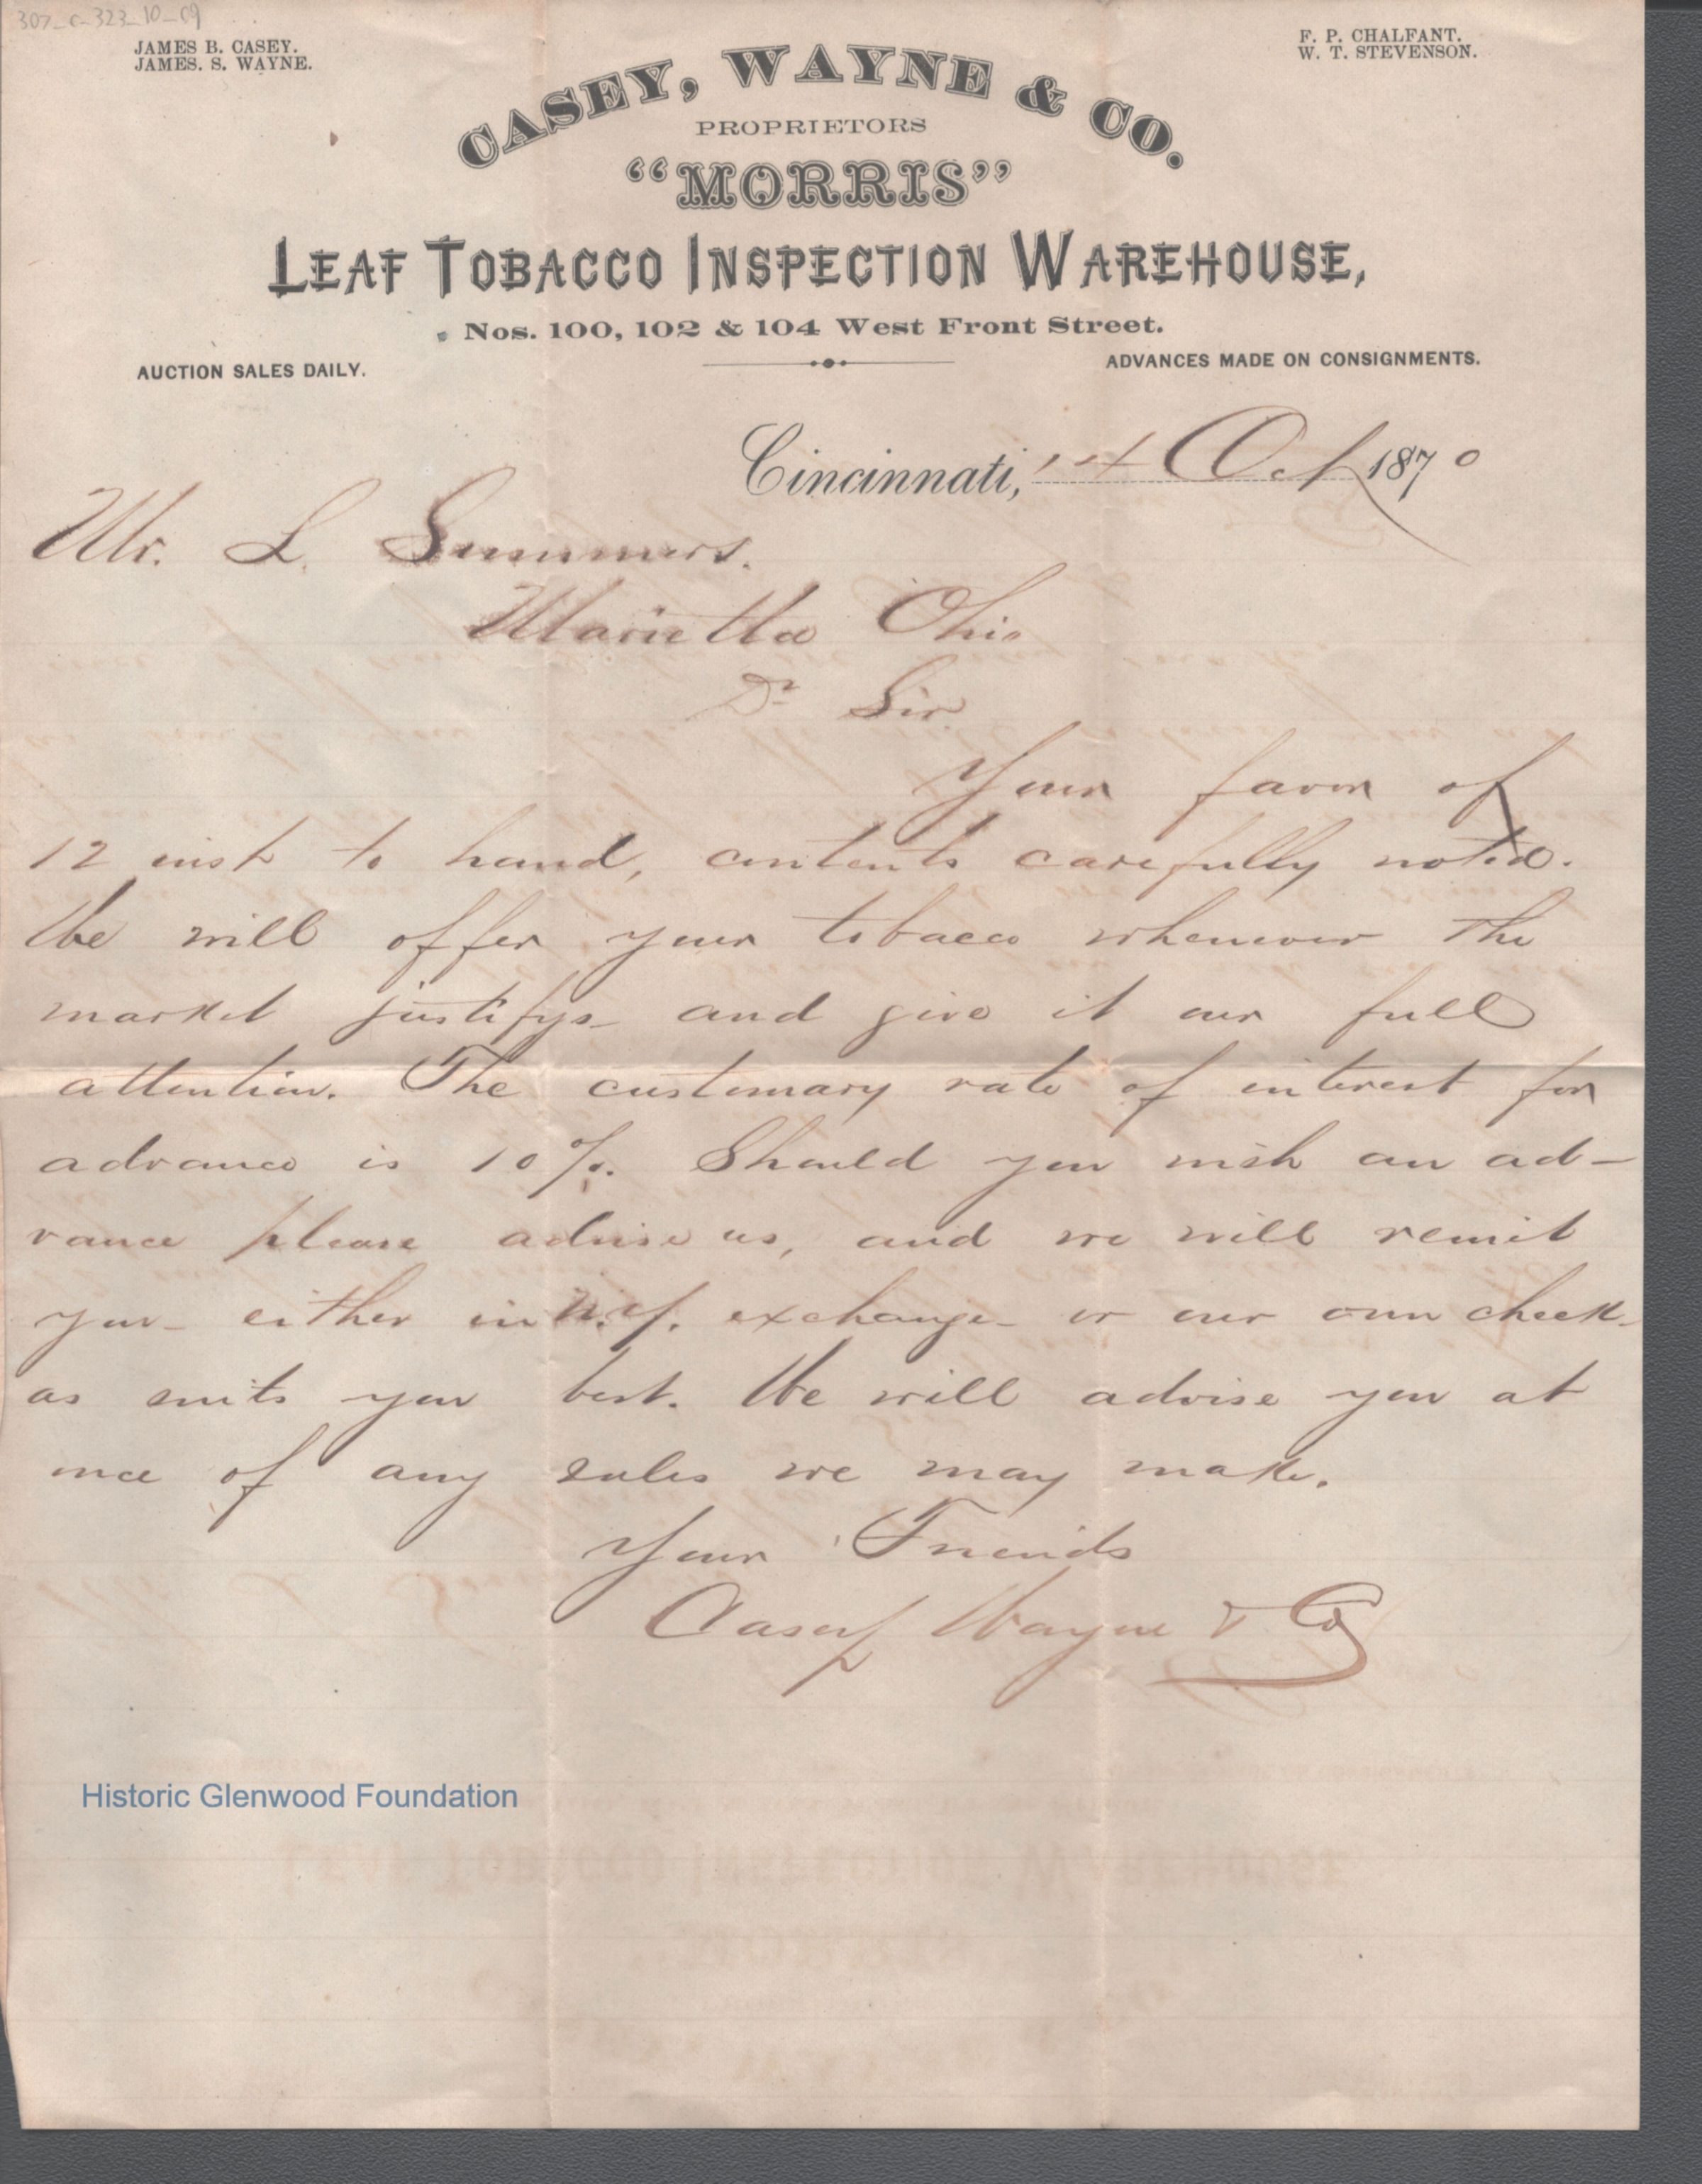 307_c-323_10_09
JAMES B. CASEY.
JAMES. S. WAYNE.
F. P. CHALFANT.
W. T. STEVENSON.
CASEY, WAYNE & CO.
PROPRIETORS
"MORRIS"
LEAF TOBACCO INSPECTION WAREHOUSE,
Nos. 100, 102 & 104 West Front Street.
AUCTION SALES DAILY.
ADVANCES MADE ON CONSIGNMENTS.
Cincinnati, 14 Oct 1870
Mr. L. Summers.
Marietta Ohio
Dr Sir
Your favor of
12 inst to hand, contents carefully noted.
We will offer your tobacco whenever the
market justifys and give it our full
attention. The customary rate of interest for
advance is 10%. Should you wish an ad-
vance please advise us, and we will remit
you either in N.Y. exchange or our own check
as suits you best. We will advise you at
once of any sales we may make.
Your Friends
Casey Wayne & Co
Historic Glenwood Foundation
LEAF TOBACCO INSPECTION WAREHOUSE